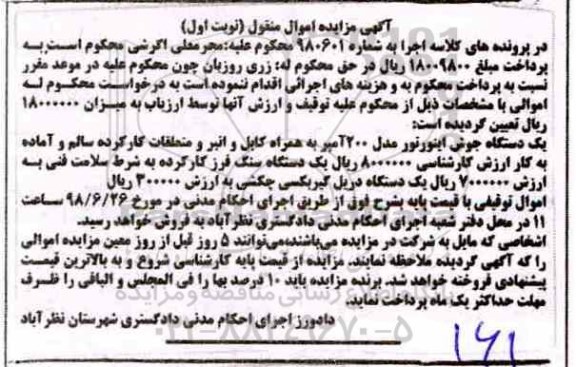 آگهی مزایده اموال منقول (نوبت اول)
در پرونده های کلاسه اجرا به شماره ۹۸۰۶۰۱ محکوم علیه:محرمعلی اکرشی محکوم است به
پرداخت مبلغ ۱۸۰۰۹۸۰۰ ریال در حق محکوم له: زری روزیان چون محکوم علیه در موعد مقرر
نسبت به پرداخت محکوم به و هزینه های اجرائی اقدام ننموده است به درخواست محکوم له
اموالی با مشخصات ذیل از محکوم علیه توقیف و ارزش آنها توسط ارزیاب به میزان ۱۸۰۰۰۰۰۰
ریال تعیین گردیده است:
یک دستگاه جوش اینورتور مدل ۲۰۰آمپر به همراه کابل و انبر و متعلقات کارکرده سالم و آماده
به کار ارزش کارشناسی ۸۰۰۰۰۰۰ ریال یک دستگاه سنگ فرز کارکرده به شرط سلامت فنی به
ارزش ۷۰۰۰۰۰۰ ریال یک دستگاه دریل گیربکسی چکشی به ارزش ۳۰۰۰۰۰ ریال
اموال توقیفی با قیمت پایه بشرح فوق از طریق اجرای احکام مدنی در مورخ ۹۸/۶/۲۶ ساعت
۱۱ در محل دفتر شعبه اجرای احکام مدنی دادگستری نظرآباد به فروش خواهد رسید.
اشخاصی که مایل به شرکت در مزایده می‌باشند،می‌توانند ۵ روز قبل از روز معین مزایده اموالی
را که آگهی گردیده ملاحظه نمایند. مزایده از قیمت پایه کارشناسی شروع و به بالاترین قیمت
پیشنهادی فروخته خواهد شد. برنده مزایده باید ۱۰ درصد بها را فی المجلس و الباقی را ظرف
مهلت حداکثر یک ماه پرداخت نماید.
دادورز اجرای احکام مدنی دادگستری شهرستان نظرآباد
۰۲۱-۸۸۳۴۹۶۷۰-۵
۱۶۱